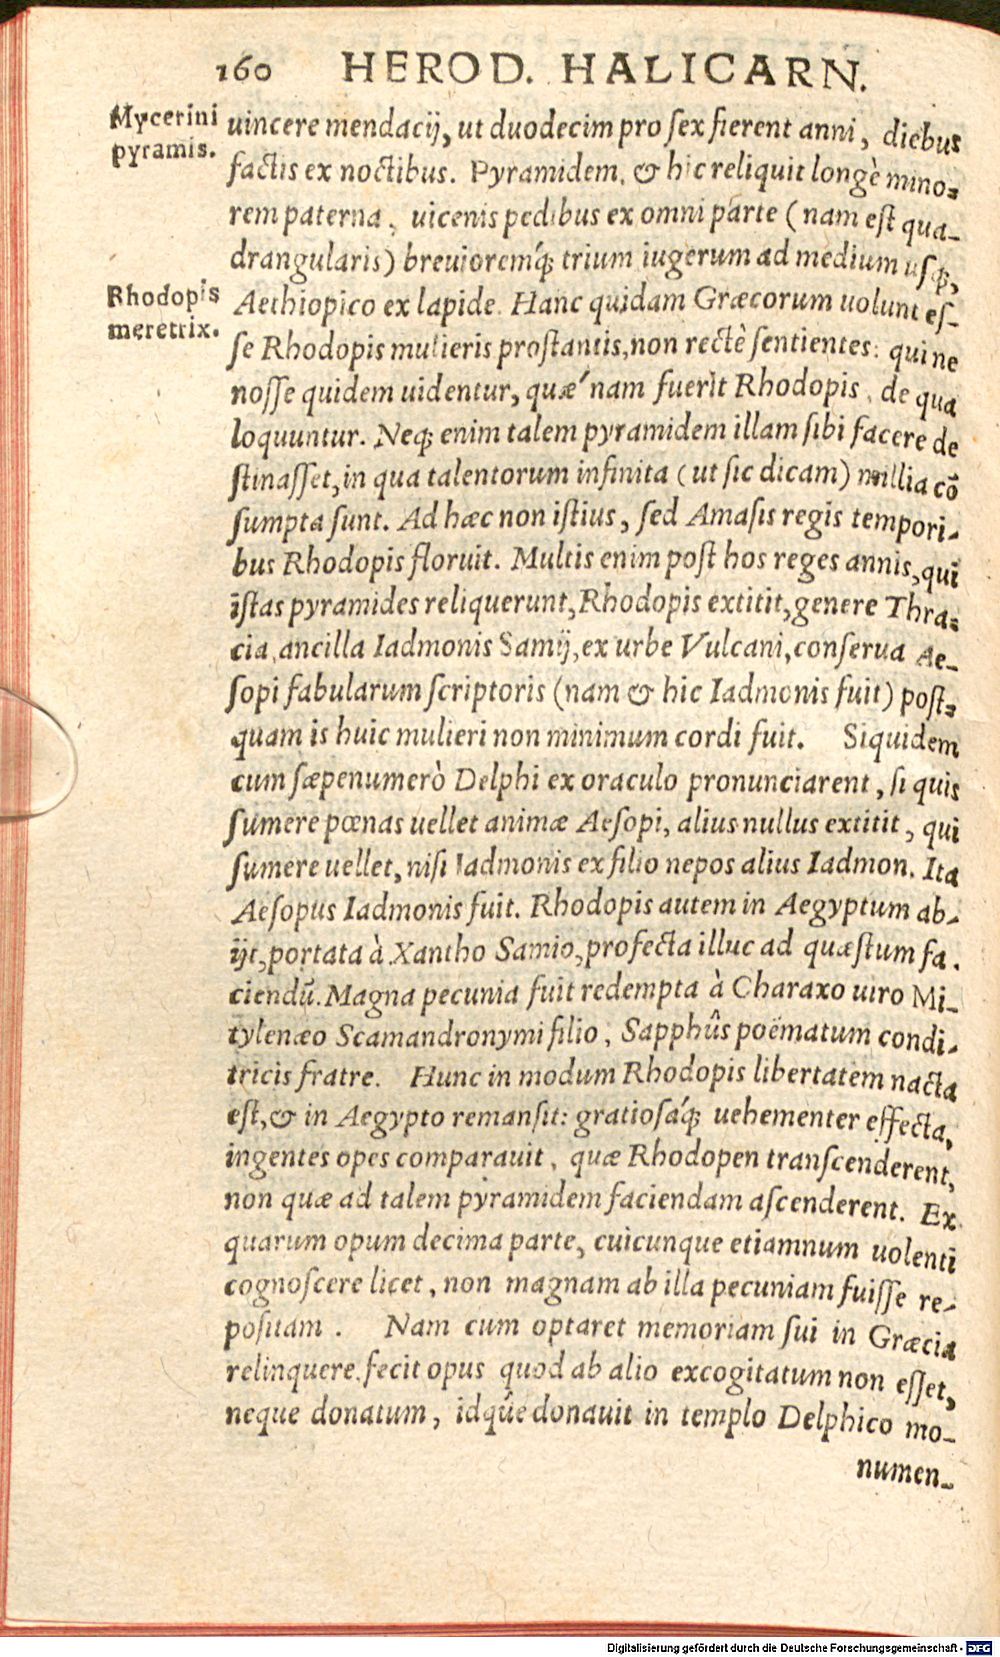 160 HEROD. HALICARN.
Mycerini
pyramis.
uincere mendacij, ut duodecim pro sex fierent anni, diebus
factis ex noctibus. Pyramidem, & hic reliquit longè mino⸗
rem paterna, uicenis pedibus ex omni parte (nam est qua-
drangularis) breuioremq́; trium iugerum ad medium usq;,
Rhodopis
meretrix.
Aethiopico ex lapide. Hanc quidam Græcorum uolunt es-
se Rhodopis mulieris prostantis, non rectè sentientes: qui ne
nosse quidem uidentur, quæ´nam fuerit Rhodopis, de qua
loquuntur. Neq; enim talem pyramidem illam sibi facere de
stinasset, in qua talentorum infinita (ut sic dicam) millia cō
sumpta sunt. Ad hæc non istius, sed Amasis regis tempori-
bus Rhodopis floruit. Multis enim post hos reges annis, qui
istas pyramides reliquerunt, Rhodopis extitit, genere Thra⸗
cia, ancilla Iadmonis Samij, ex urbe Vulcani, conserua Ae-
sopi fabularum scriptoris (nam & hic Iadmonis fuit) post⸗
quam is huic mulieri non minimum cordi fuit. Siquidem
cum sæpenumerò Delphi ex oraculo pronunciarent, si quis
sumere pœnas uellet animæ Aesopi, alius nullus extitit, qui
sumere uellet, nisi Iadmonis ex filio nepos alius Iadmon. Ita
Aesopus Iadmonis fuit. Rhodopis autem in Aegyptum ab-
ijt, portata à Xantho Samio, profecta illuc ad quæstum fa-
ciendū. Magna pecunia fuit redempta à Charaxo uiro Mi-
tylenæo Scamandronymi filio, Sapphûs poëmatum condi-
tricis fratre. Hunc in modum Rhodopis libertatem nacta
est, & in Aegypto remansit: gratiosaq́; uehementer effecta,
ingentes opes comparauit, quæ Rhodopen transcenderent,
non quæ ad talem pyramidem faciendam ascenderent. Ex
quarum opum decima parte, cuicunque etiamnum uolenti
cognoscere licet, non magnam ab illa pecuniam fuisse re-
positam. Nam cum optaret memoriam sui in Græcia
relinquere, fecit opus quod ab alio excogitatum non esset,
neque donatum, idq́ue donauit in templo Delphico mo-
numen-
Digitalisierung gefördert durch die Deutsche Forschungsgemeinschaft - DFG